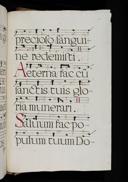 precioso sangui-
ne redemisti.
Aeterna fac cu
sanctis tuis glo
ria munerari.
Salvum fac po
pulum tuum Do